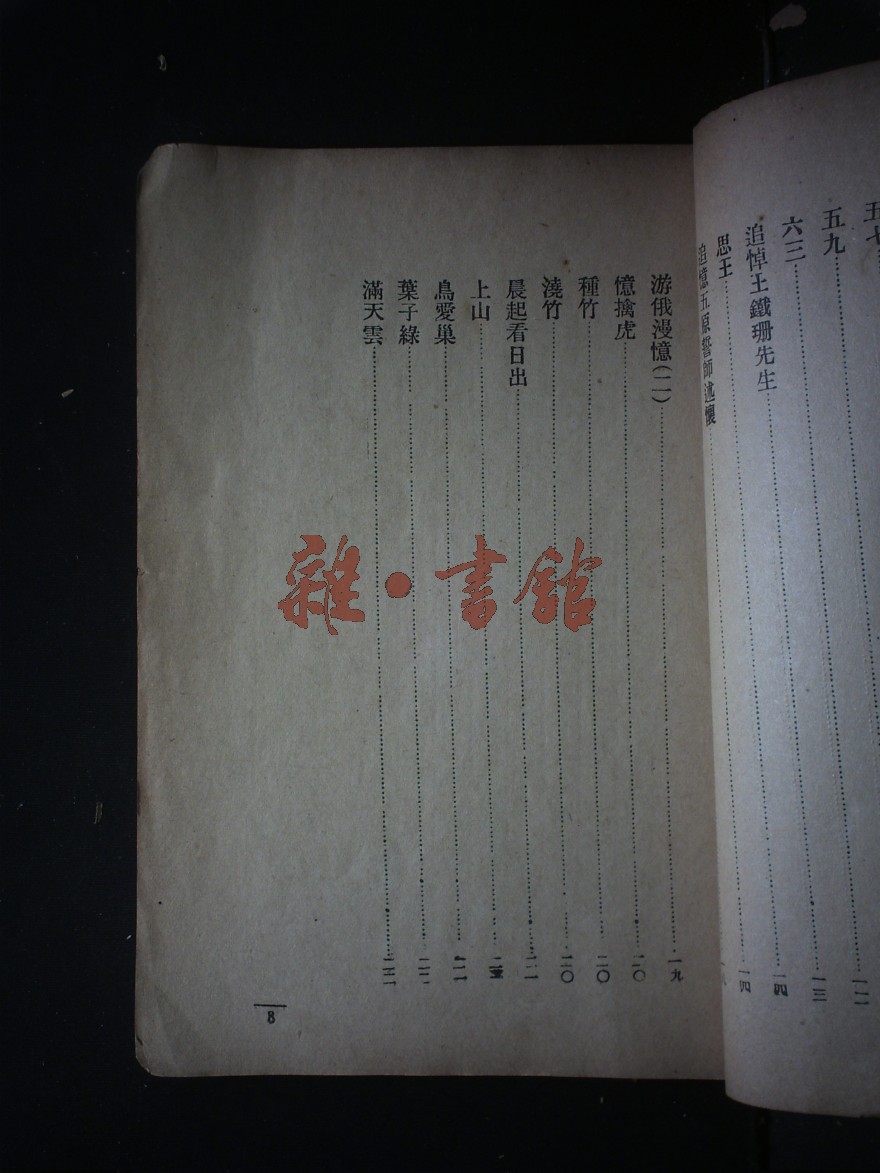 五七
五九……一三
六三……一四
追悼王鐵珊先生……一四
思王
追憶五原誓師述懷
游俄漫憶(二)……一九
憶擒虎……二〇
種竹……二〇
澆竹……二〇
晨起看日出
上山
鳥愛巢
葉子綠
滿天雲
8
雜·書館